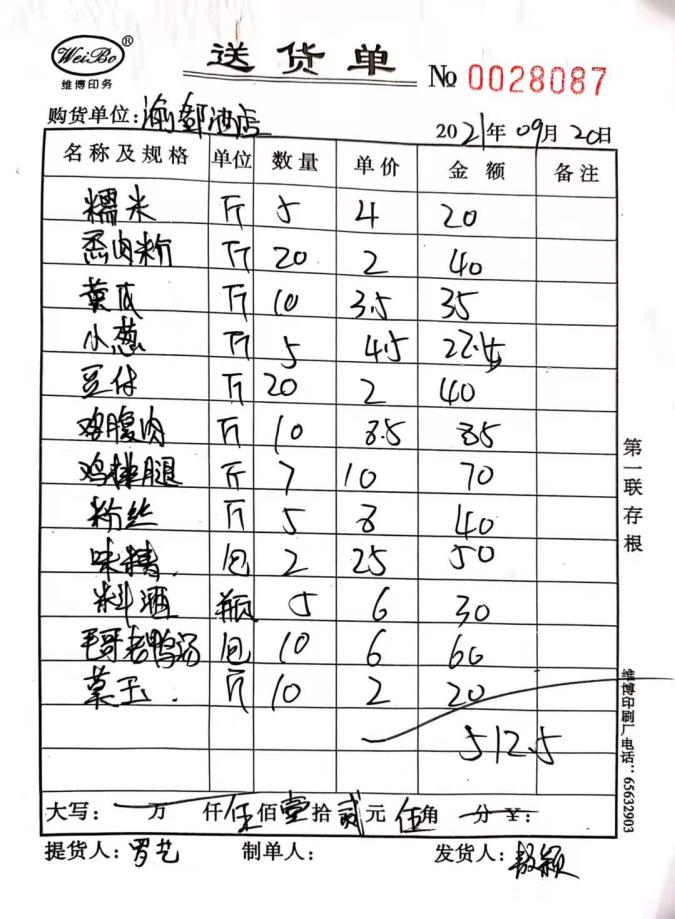 WeiBo®
维博印务
送货单
No 0028087
购货单位:渝都酒店
2021年09月20日
名称及规格 单位 数量 单价 金额 备注
糯米 斤 5 4 20
蒸肉粉 斤 20 2 40
黄瓜 斤 10 3.5 35
小葱 斤 5 4.5 22.5
豆付 斤 20 2 40
鸡腹肉 斤 10 8.5 85
鸡排腿 斤 7 10 70
粉丝 斤 5 8 40
味精. 包 2 25 50
料酒 瓶 5 6 30
毛哥老鸭汤 包 10 6 60
斤 10 2 20
512.5
大写: 万 仟伍佰壹拾贰元伍角 分 ¥:
提货人:罗艺 制单人: 发货人:
第一联存根
维博印刷厂电话:65632903